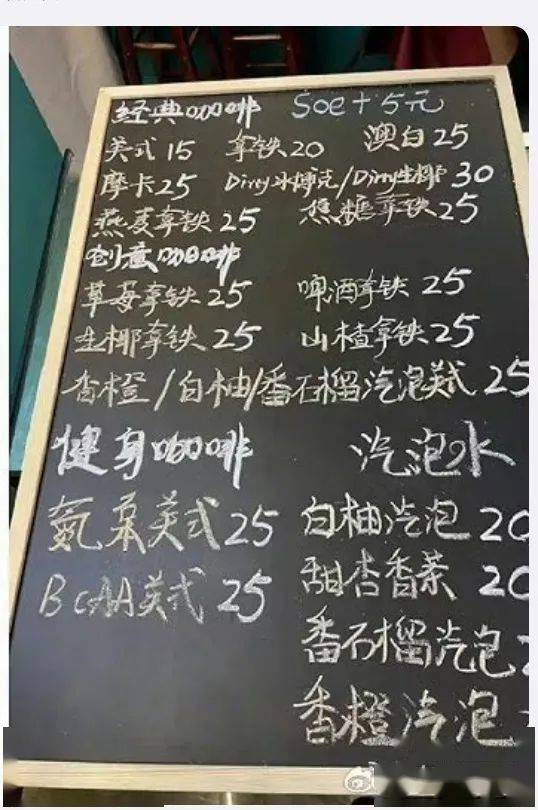 经典咖啡 Soe+5元
美式15 拿铁20 澳白25
摩卡25 Dirty冰博克/Dirty生椰30
燕麦拿铁25 焦糖拿铁25
创意咖啡
草莓拿铁25 啤酒拿铁25
生椰拿铁25 山楂拿铁25
香橙/白柚/番石榴汽泡美式25
健身咖啡 汽泡水
氮泵美式25 白柚汽泡20
BCAA美式25 甜杏香茶20
番石榴汽泡
香橙汽泡